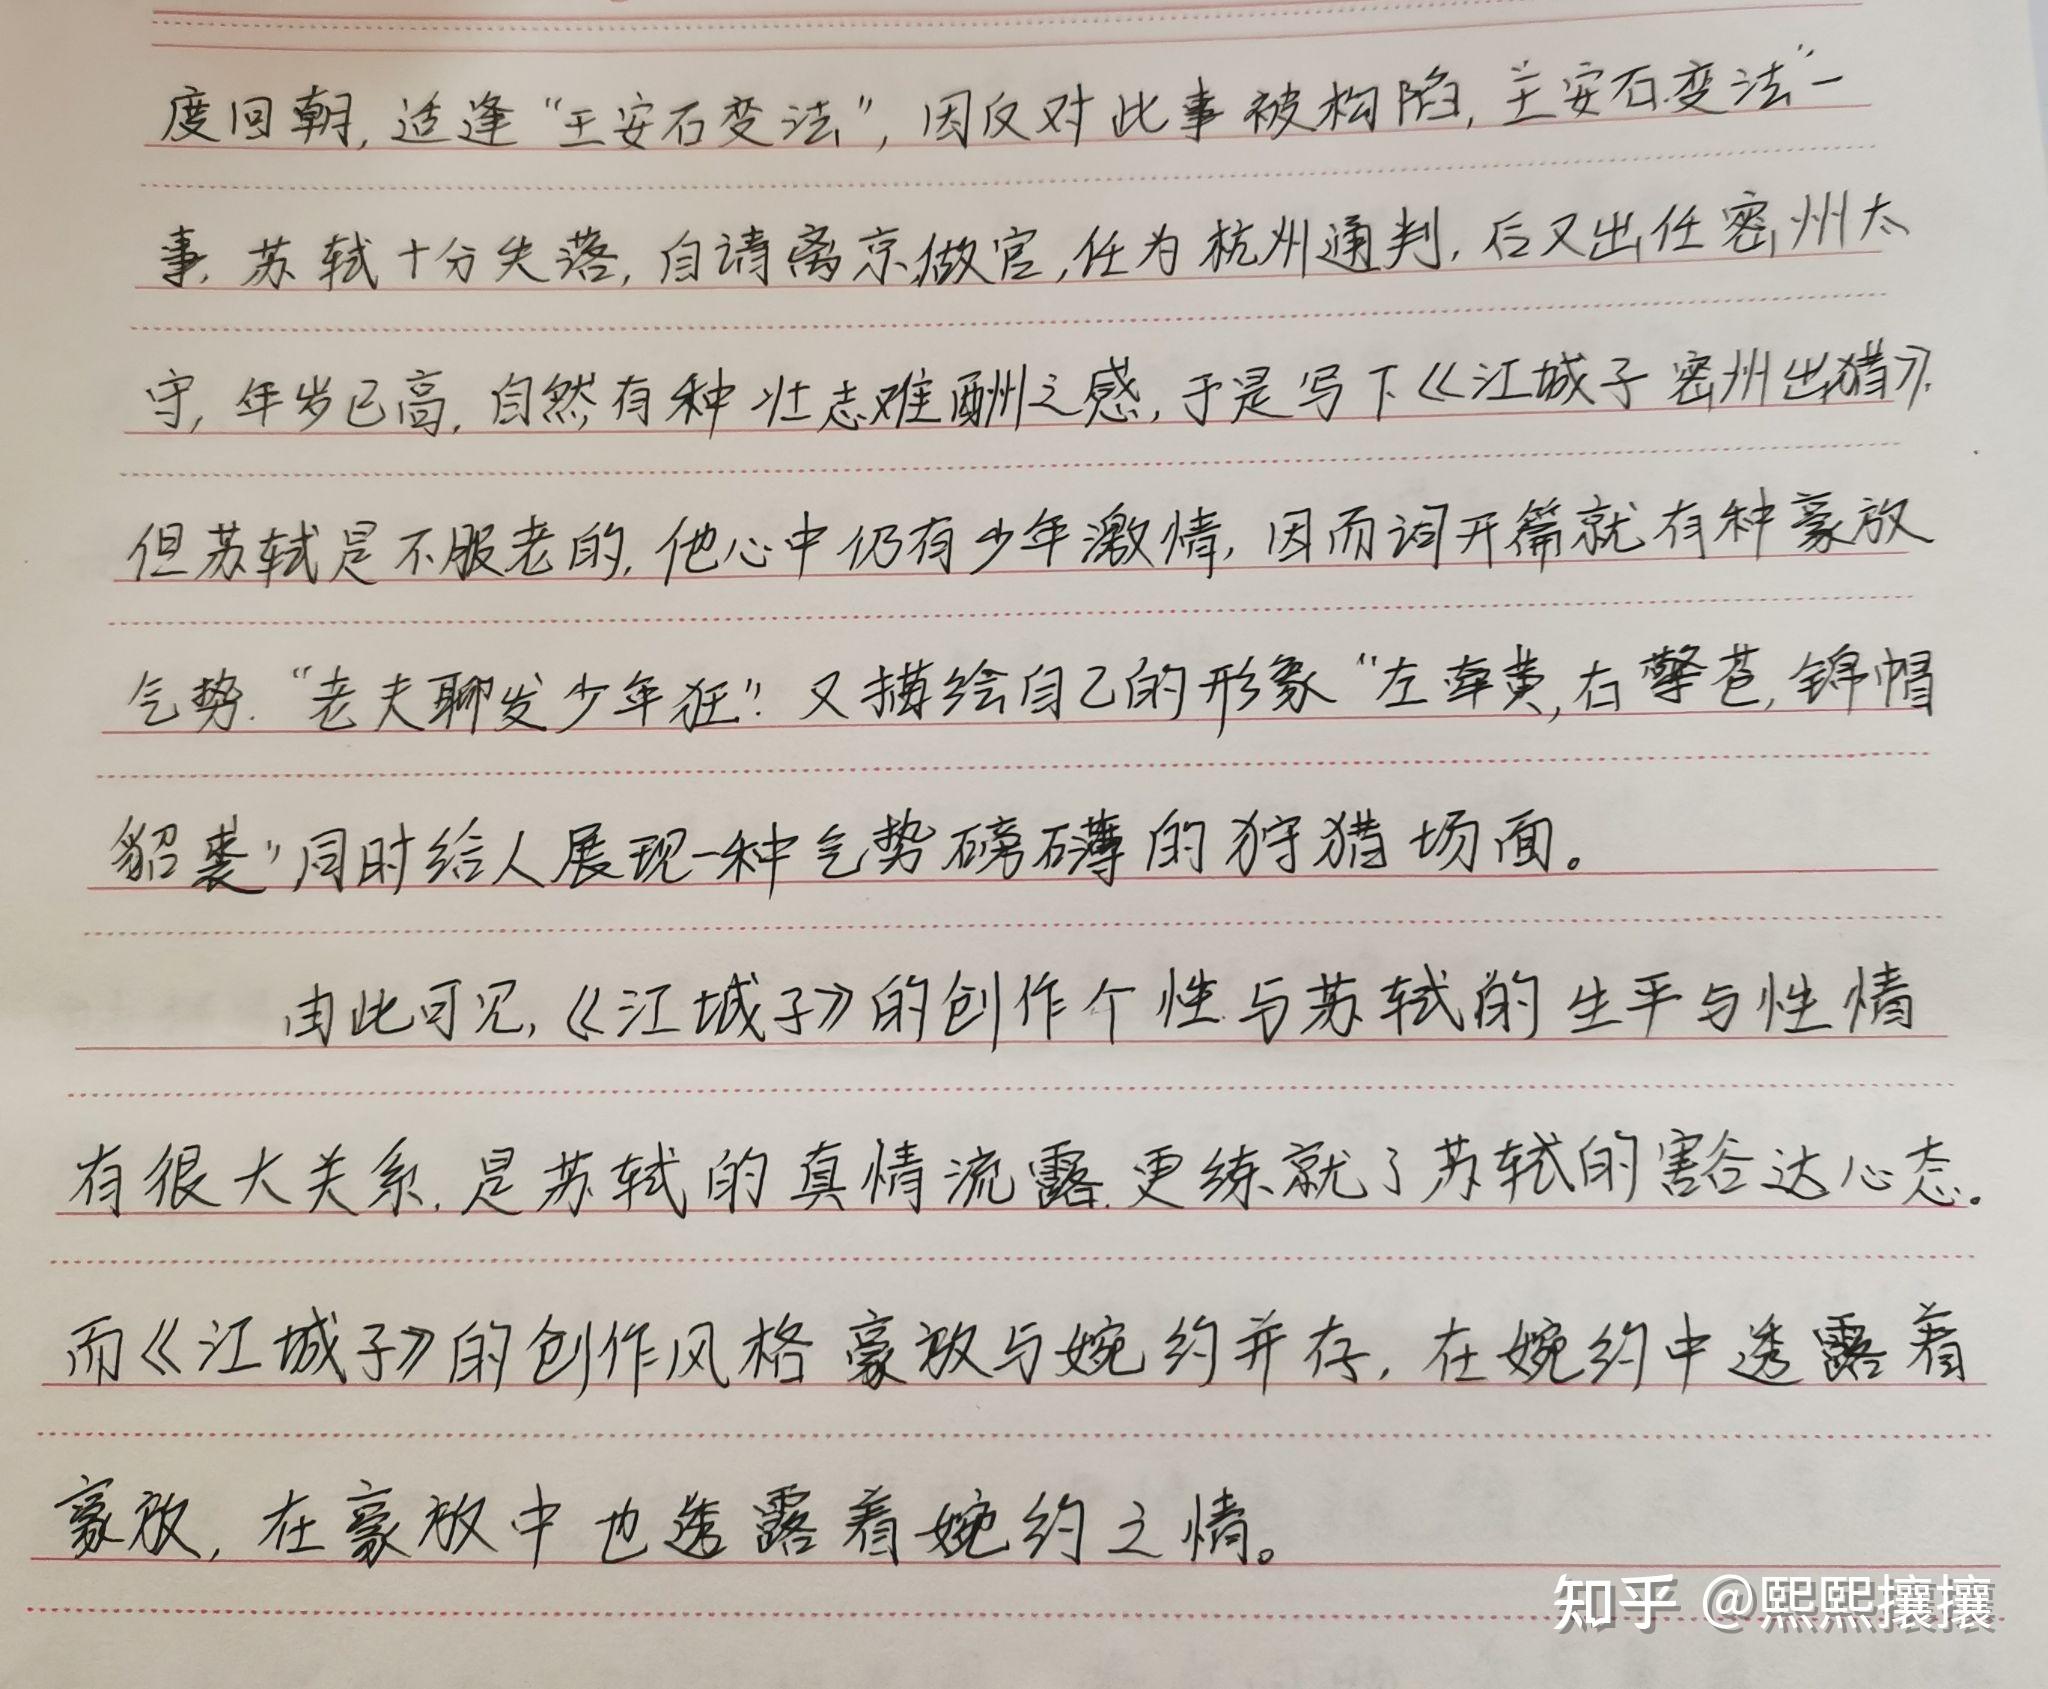 度回朝,适逢“王安石变法”,因反对此事被构陷,“王安石变法”一
事,苏轼十分失落,自请离京做官,任为杭州通判,后又出任密州太
守,年岁已高,自然有种壮志难酬之感,于是写下《江城子 密州出猎》,
但苏轼是不服老的,他心中仍有少年激情,因而词开篇就有种豪放
气势.“老夫聊发少年狂”.又描绘自己的形象“左牵黄,右擎苍,锦帽
貂裘”同时给人展现一种气势磅礴的狩猎场面。
由此可见,《江城子》的创作个性与苏轼的生平与性情
有很大关系,是苏轼的真情流露.更练就了苏轼的豁达心态。
而《江城子》的创作风格豪放与婉约并存,在婉约中透露着
豪放,在豪放中也透露着婉约之情。
知乎 @熙熙攘攘